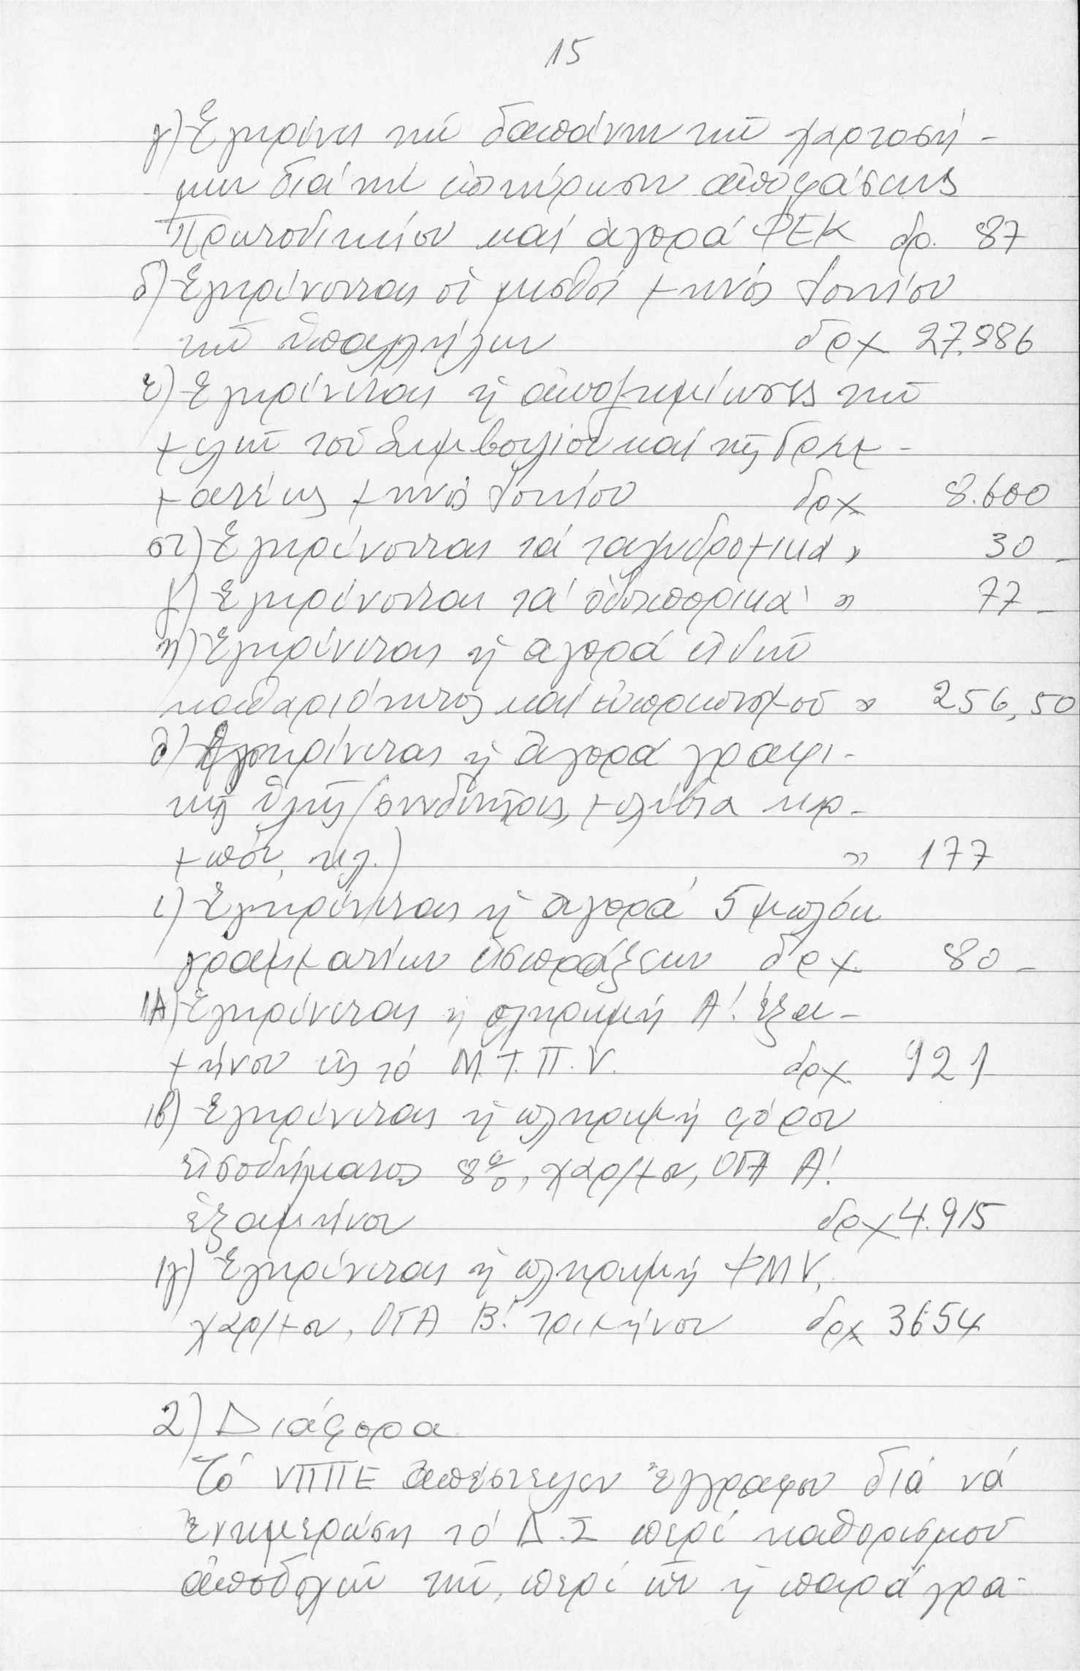 15
γ) Ἐγκρίνει τήν δαπάνην τῶν χαρτοσή-
μων διά τήν ἐπικύρωσιν ἀποφάσεως
Πρωτοδικείου καί ἀγορά ΦΕΚ δρ. 87
δ) Ἐγκρίνονται οἱ μισθοί μηνός Ἰουνίου
τῶν ὑπαλλήλων δρχ 27.986
ε) Ἐγκρίνεται ἡ ἀποζημίωσις τῶν
μελῶν τοῦ Συμβουλίου καί τῆς Γραμ-
ματέως μηνός Ἰουνίου δρχ 8.600
στ) Ἐγκρίνονται τά ταχυδρομικά » 30 -
ζ) Ἐγκρίνονται τά ὁδοιπορικά » 77 -
η) Ἐγκρίνεται ἡ ἀγορά εἰδῶν
καθαριότητος καί εὐπρεπισμοῦ » 256,50
θ) Ἐγκρίνεται ἡ ἀγορά γραφι-
κῆς ὕλης (συνδετῆρες, μολύβια
κλ.) » 177
ι) Ἐγκρίνεται ἡ ἀγορά 5 μπλόκ
γραμματίων εἰσπράξεων δρχ. 80 -
ΙΑ) Ἐγκρίνεται ἡ πληρωμή Α! ἑξα-
μήνου εἰς τό Μ.Τ.Π.Υ. δρχ. 921
ΙΒ) Ἐγκρίνεται ἡ πληρωμή φόρου
εἰσοδήματος 8%, χαρ/μου, ΟΓΑ Α!
ἑξαμήνου δρχ 4.915
ΙΓ) Ἐγκρίνεται ἡ πληρωμή ΦΜΥ,
χαρ/μου, ΟΓΑ Β! τριμήνου δρχ 3654
2) Διάφορα
Τό ΥΠΠΕ ἀπέστειλεν ἔγγραφον διά νά
ἐνημερώση τό Δ.Σ περί καθορισμοῦ
ἀποδοχῶν τῶν, περί ὧν ἡ παράγρα-